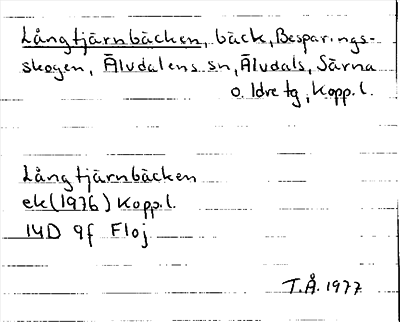 Långtjärnbäcken, bäck, Besparings-
skogen, Älvdalens sn, Älvdals, Särna
o. Idre tg, Kopp.l.
Långtjärnbäcken
ek(1976) Kopp.l.
14D 9f Floj
T.Å. 1977